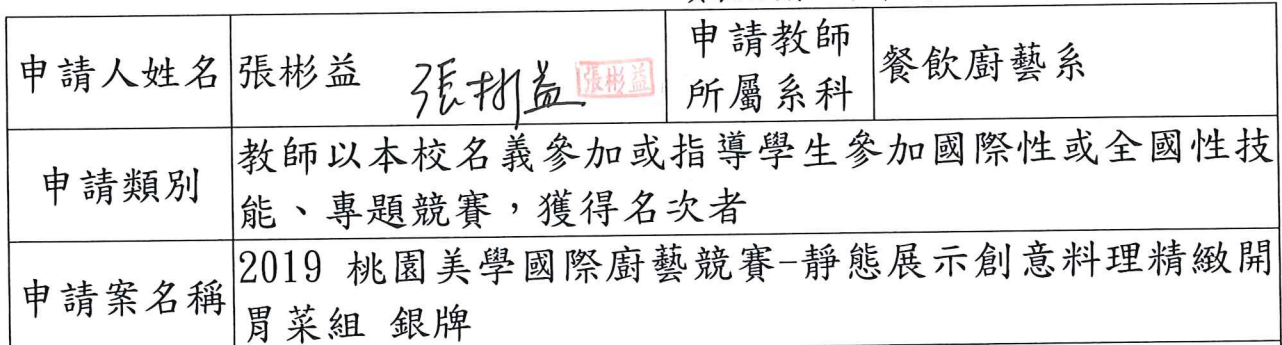 申請人姓名 張彬益 張彬益 張彬益 申請教師所屬系科 餐飲廚藝系
申請類別 教師以本校名義參加或指導學生參加國際性或全國性技
能、專題競賽，獲得名次者
申請案名稱 2019 桃園美學國際廚藝競賽-靜態展示創意料理精緻開
胃菜組 銀牌